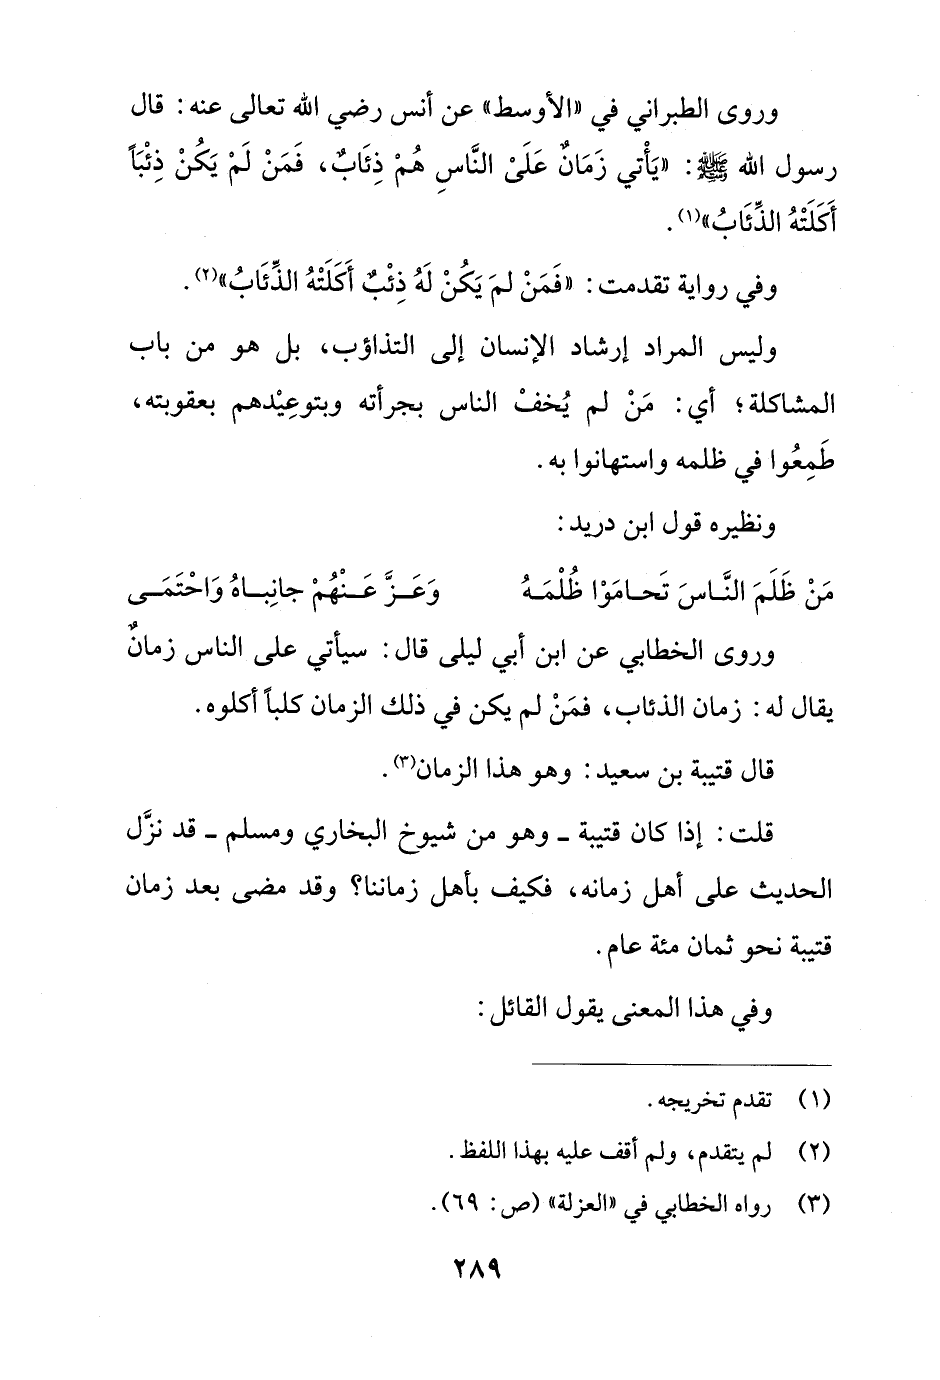 وروى الطبراني في «الأوسط» عن أنس رضي الله تعالى عنه: قال
رسول الله ﷺ: «يَأْتي زَمَانٌ عَلَىْ النَّاسِ هُمْ ذِئَابٌ، فَمَنْ لَمْ يَكُنْ ذِئْبَاً
أَكَلَتْهُ الذِّئَابُ»(١).
وفي رواية تقدمت: «فَمَنْ لمَ يَكُنْ لَهُ ذِئْبٌ أَكَلَتْهُ الذِّئَابُ»(٢).
وليس المراد إرشاد الإنسان إلى التذاؤب، بل هو من باب
المشاكلة؛ أي: مَنْ لم يُخفْ الناس بجرأته وبتوعِيْدهم بعقوبته،
طَمِعُوا في ظلمه واستهانوا به.
ونظيره قول ابن دريد:
مَنْ ظَلَمَ النَّاسَ تَحـامَوْا ظُلْمَـهُ وَعَـزَّ عَـنْهُمْ جانِبـاهُ وَاحْتَمَـى
وروى الخطابي عن ابن أبي ليلى قال: سيأتي على الناس زمانٌ
يقال له: زمان الذئاب، فمَنْ لم يكن في ذلك الزمان كلباً أكلوه.
قال قتيبة بن سعيد: وهو هذا الزمان(٣).
قلت: إذا كان قتيبة ـ وهو من شيوخ البخاري ومسلم ـ قد نزَّل
الحديث على أهل زمانه، فكيف بأهل زماننا؟ وقد مضى بعد زمان
قتيبة نحو ثمان مئة عام.
وفي هذا المعنى يقول القائل:
(١) تقدم تخريجه.
(٢) لم يتقدم، ولم أقف عليه بهذا اللفظ.
(٣) رواه الخطابي في «العزلة» (ص: ٦٩).
٢٨٩